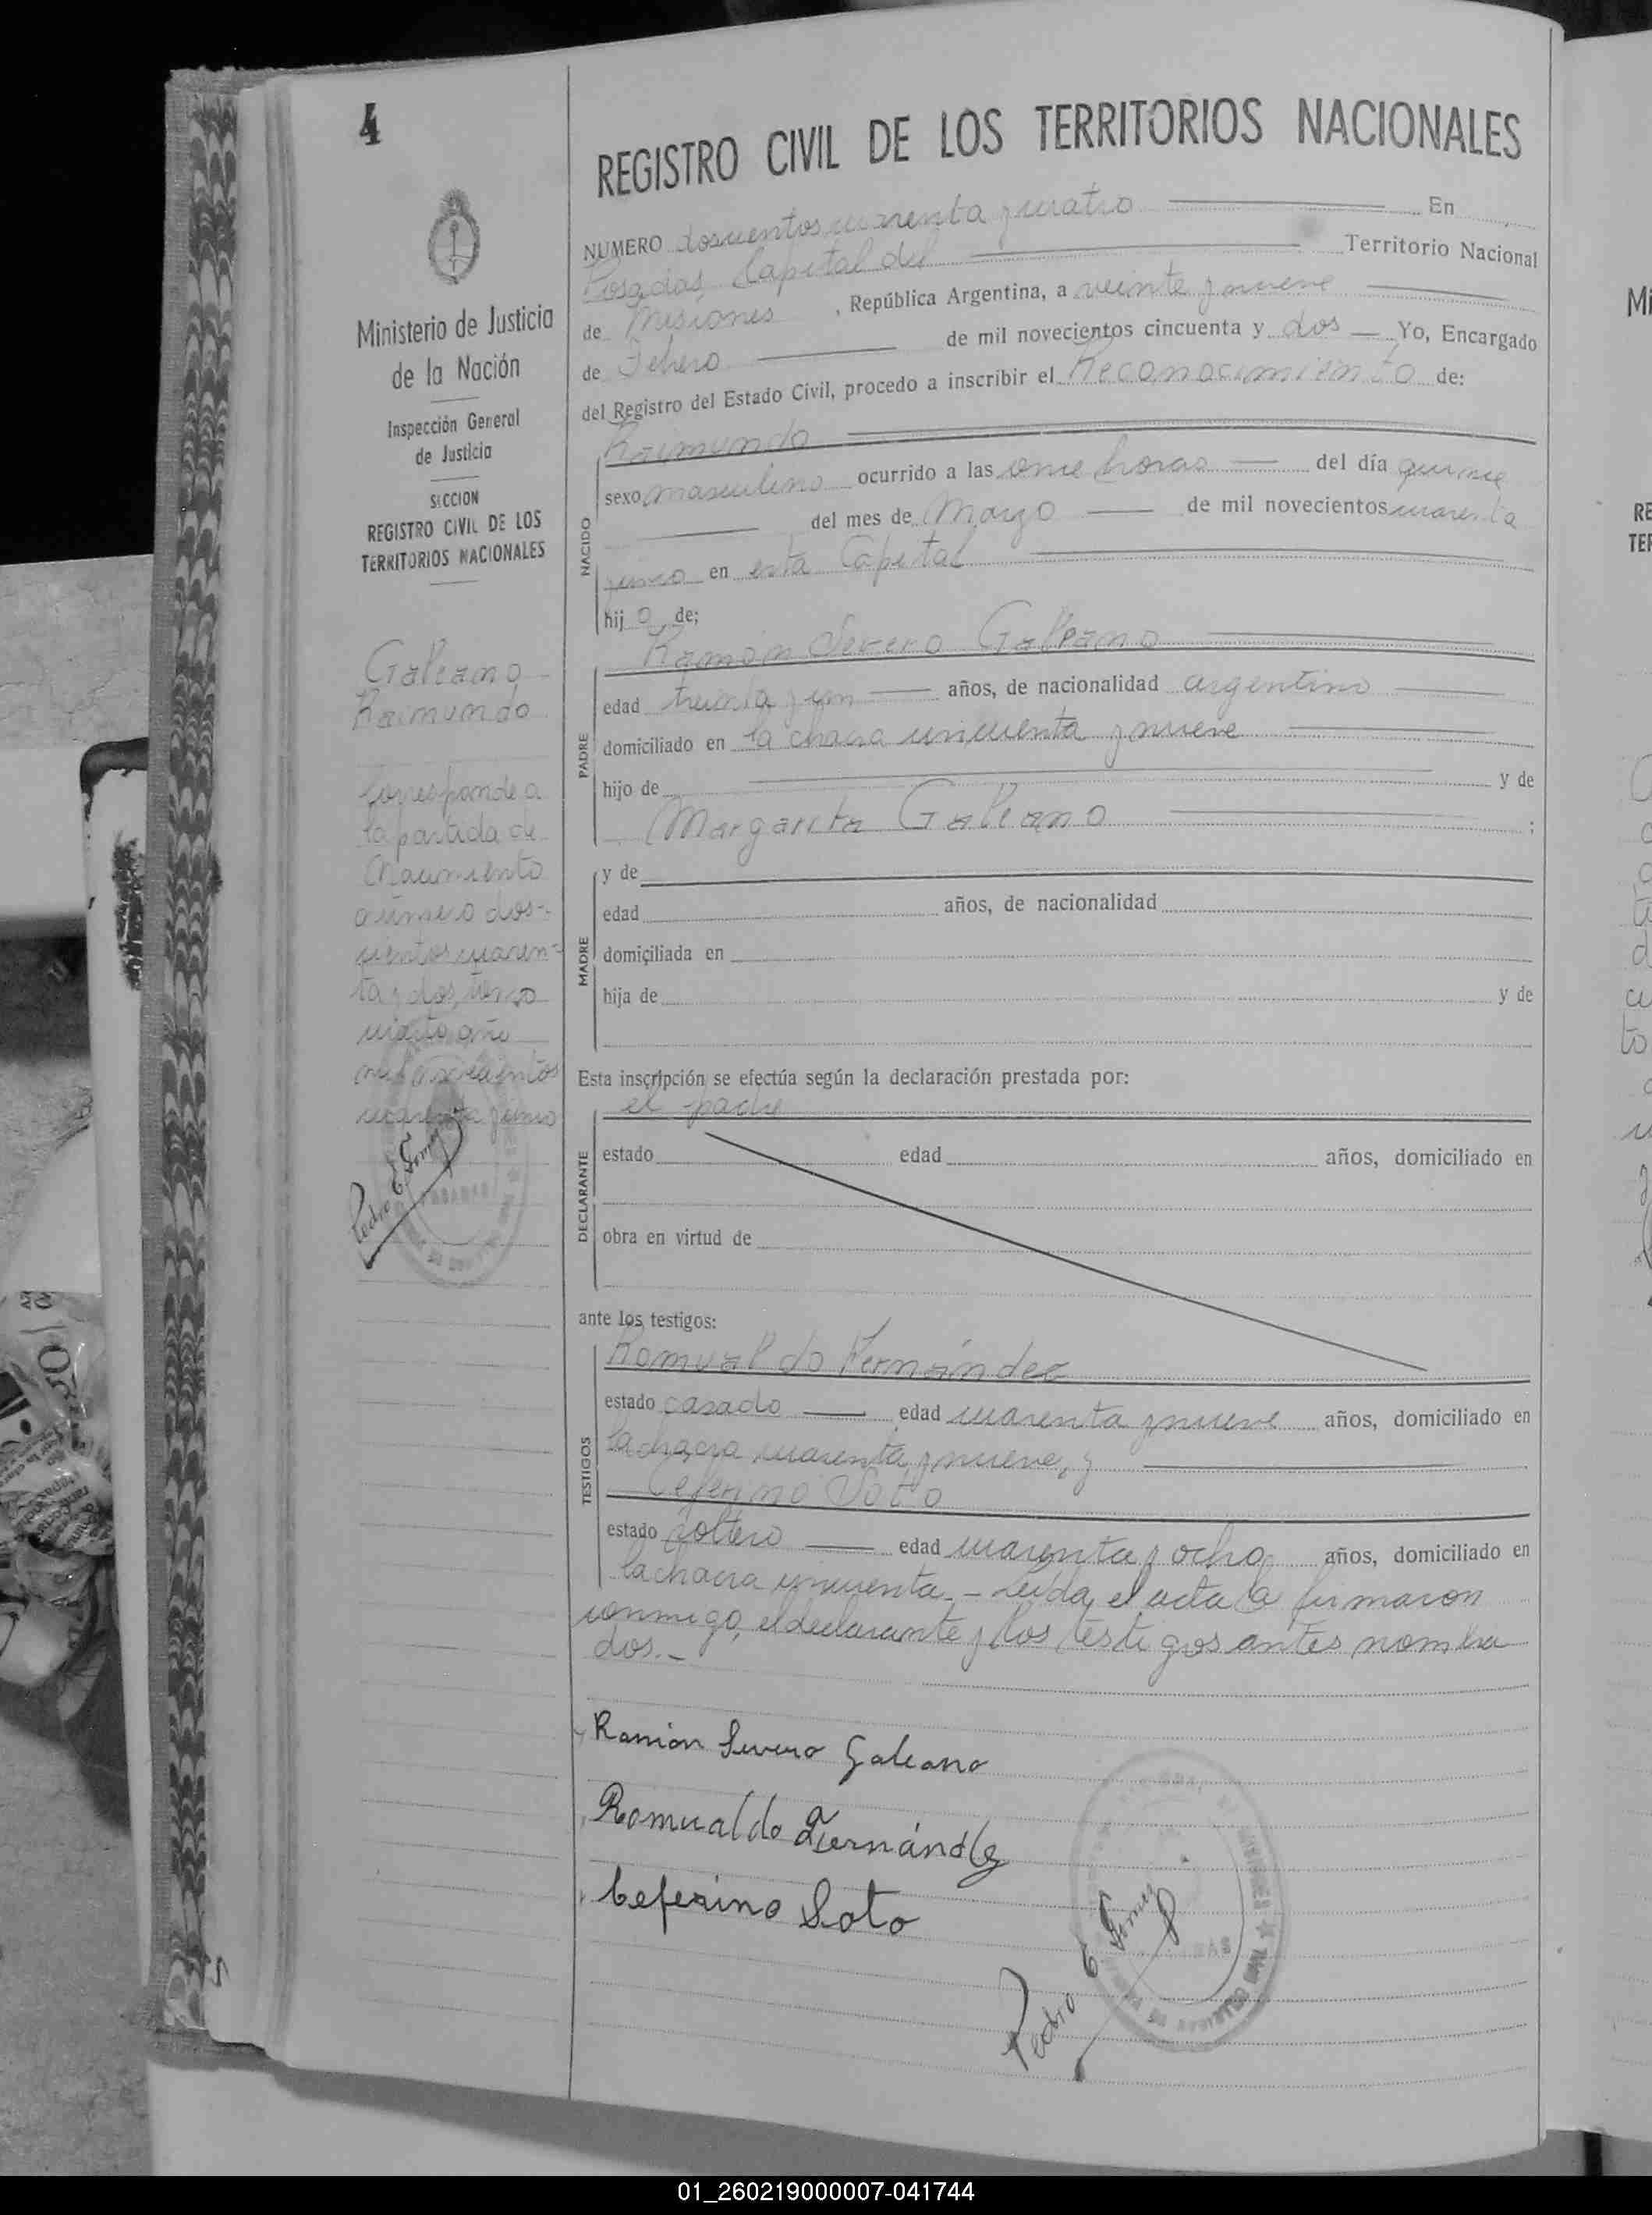 4
REGISTRO CIVIL DE LOS TERRITORIOS NACIONALES
NUMERO doscientos cuarenta y cuatro En
Posadas, Capital del Territorio Nacional
de Misiones, República Argentina, a veinte y nueve
de Febrero de mil novecientos cincuenta y dos Yo, Encargado
del Registro del Estado Civil, procedo a inscribir el Reconocimiento de:
Raimundo
sexo masculino ocurrido a las once horas del día quince
del mes de Marzo de mil novecientos cuarenta
y cinco en esta Capital
hijo de;
NACIDO
Ramón Severo Galeano
edad treinta y un años, de nacionalidad argentino
domiciliado en la chacra cincuenta y nueve
hijo de y de
Margarita Galeano ;
PADRE
y de
edad años, de nacionalidad
domiciliada en
hija de y de
MADRE
Esta inscripción se efectúa según la declaración prestada por:
el padre
estado edad años, domiciliado en
obra en virtud de
DECLARANTE
ante los testigos:
Romualdo Fernández
estado casado edad cuarenta y nueve años, domiciliado en
la chacra cuarenta y nueve, y
Ceferino Soto
estado soltero edad cuarenta y ocho años, domiciliado en
la chacra cincuenta.- Leída el acta la firmaron
conmigo, el declarante y los testigos antes nombra
dos.-
TESTIGOS
Ramón Severo Galeano
Romualdo Fernández
Ceferino Soto
Pedro E. Gómez
Ministerio de Justicia
de la Nación
Inspección General
de Justicia
SECCION
REGISTRO CIVIL DE LOS
TERRITORIOS NACIONALES
Galeano
Raimundo
Corresponde a
la partida de
Nacimiento
número dos-
cientos cuaren-
ta y dos, tomo
cuarto año
mil novecientos
cuarenta y cinco
Pedro E. Gómez
01_260219000007-041744